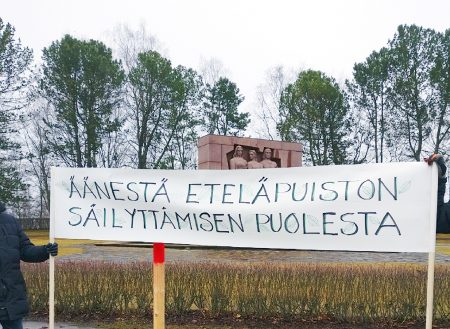 ÄÄNESTÄ ETELÄPUISTON
SÄILYTTÄMISEN PUOLESTA